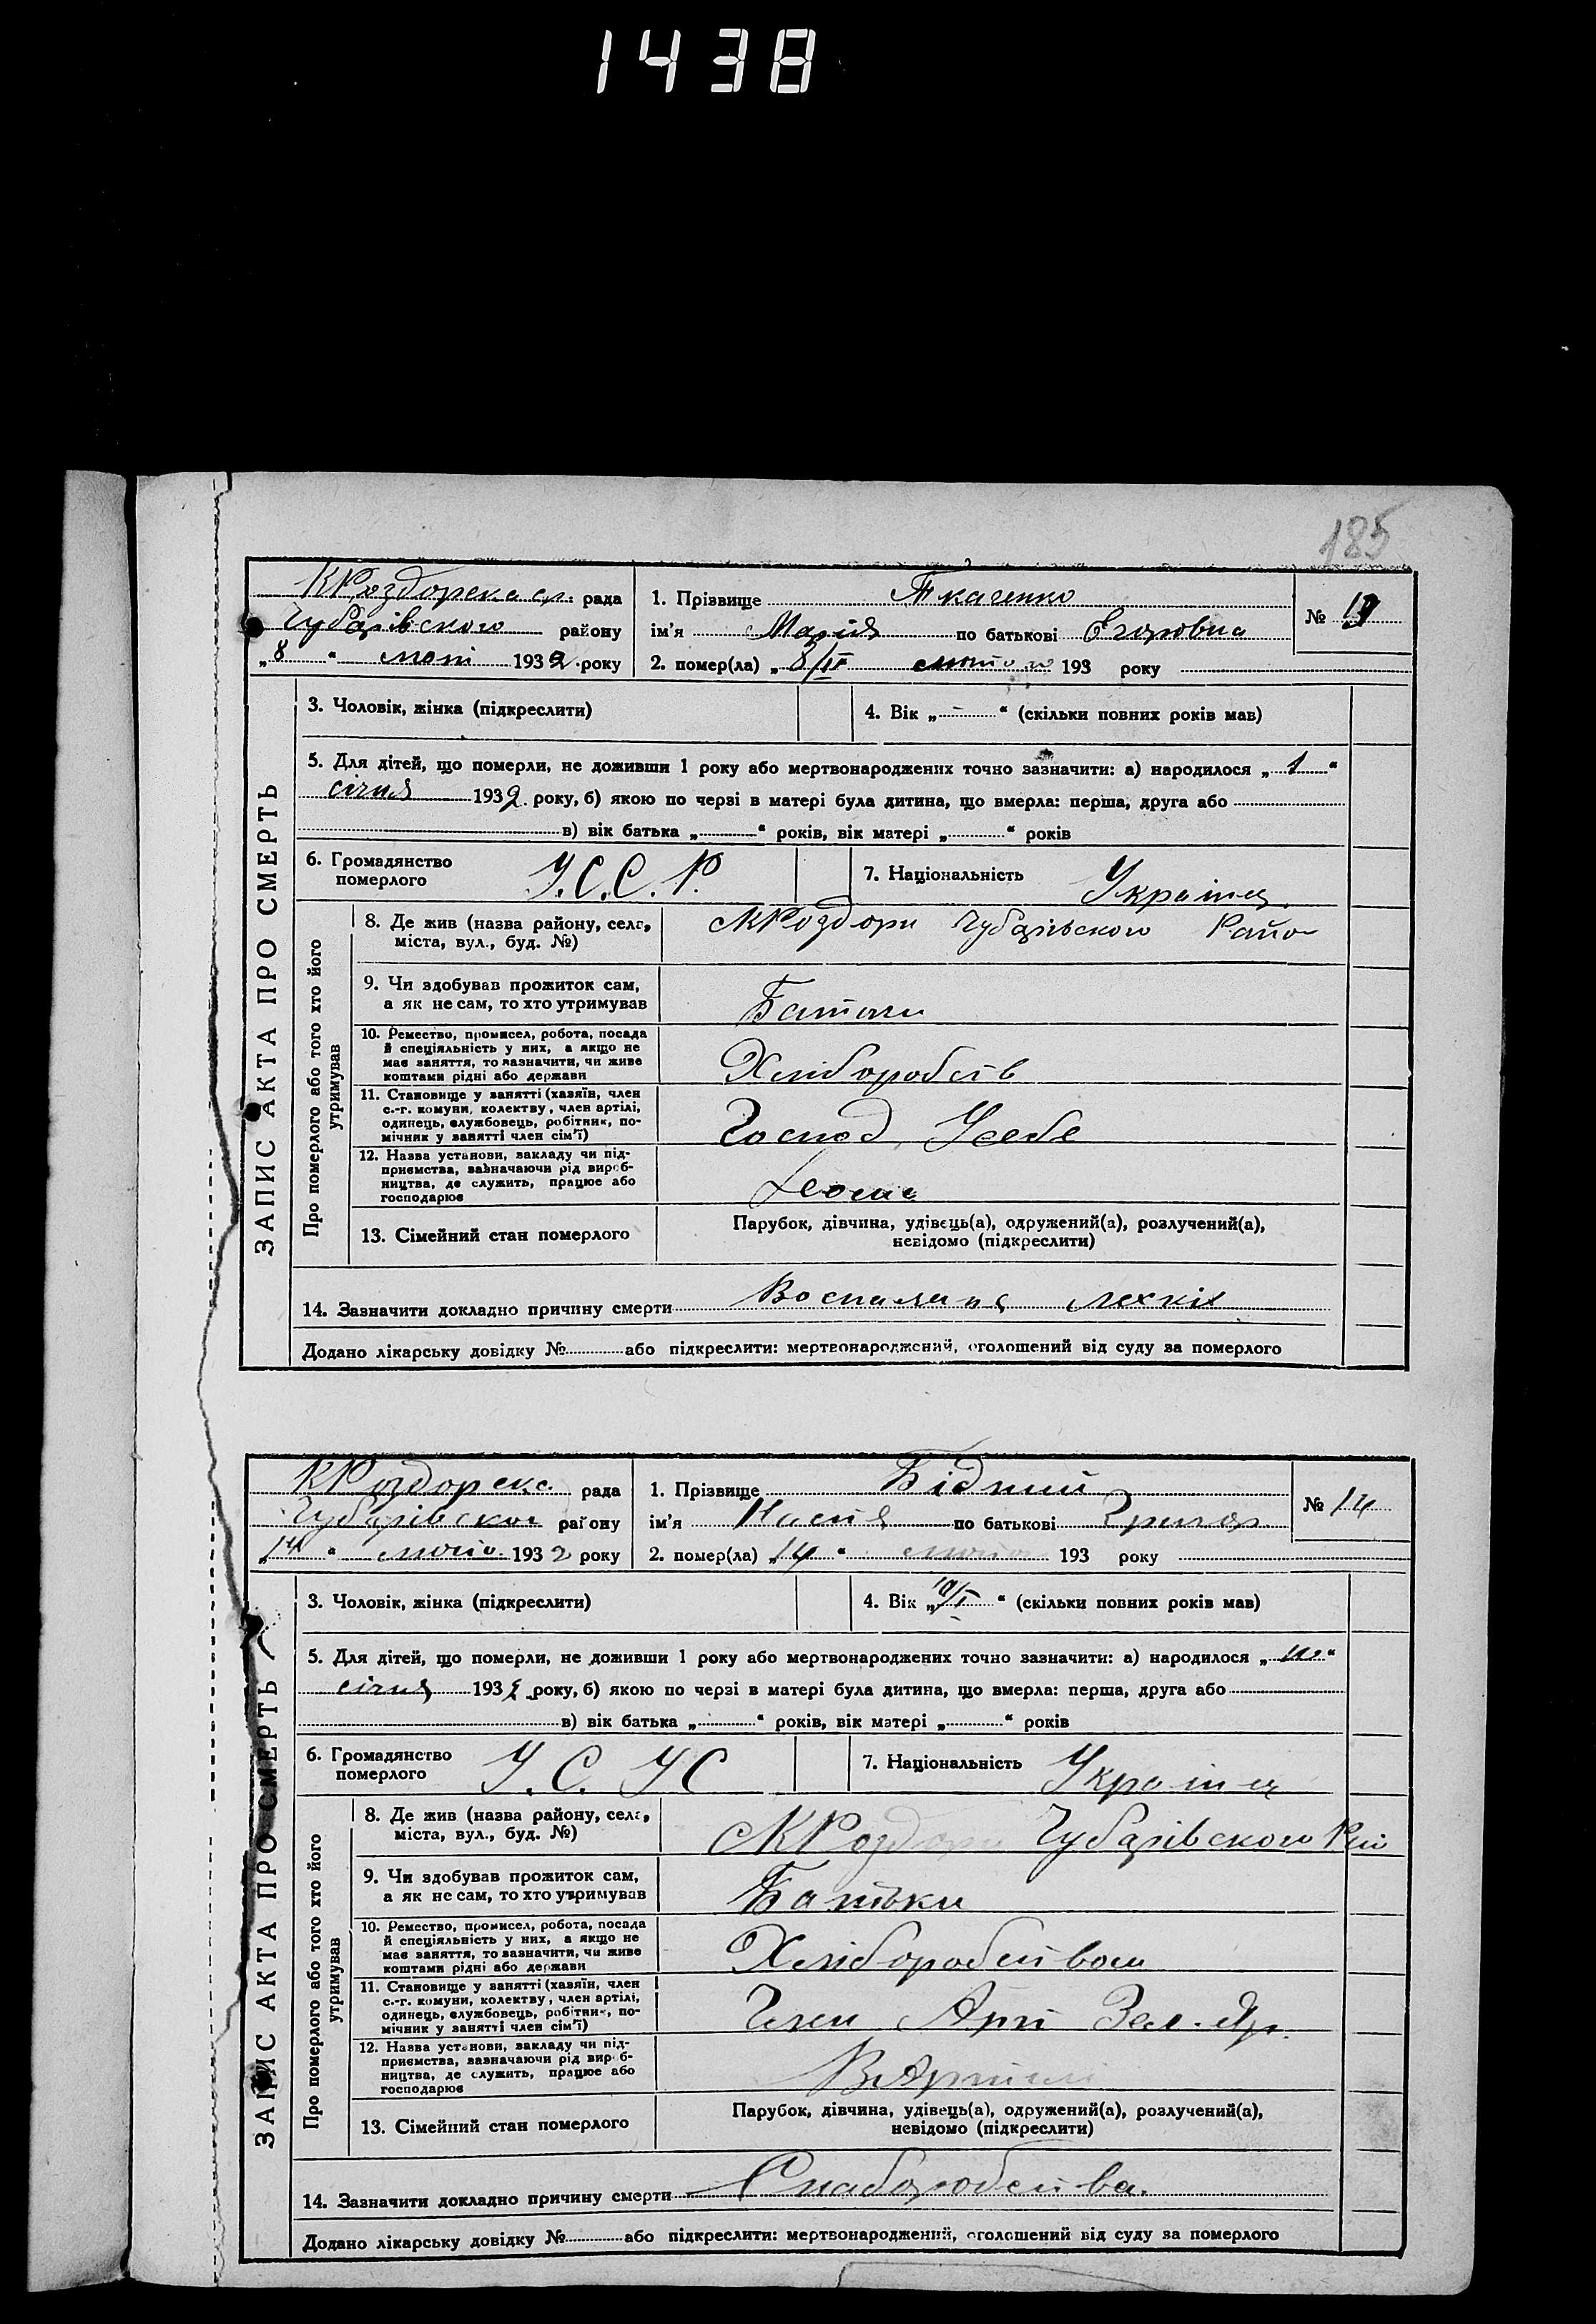 1438
185
КРоздорска с/г. рада
Чубарівского району
„8 “ мопі 1932 року
1. Прізвище Ткаченко
ім'я Марія по батькові Егоровна
2. помер(ла) „ 8/II 193 року
№ 13
ЗАПИС АКТА ПРО СМЕРТЬ
3. Чоловік, жінка (підкреслити)
4. Вік „ - “ (скільки повних років мав)
5. Для дітей, що померли, не доживши 1 року або мертвонароджених точно зазначити: а) народилося „ 1 “
січня 1932 року, б) якою по черві в матері була дитина, що вмерла: перша, друга або
в) вік батька „ “ років, вік матері „ “ років
6. Громадянство
померлого У.С.С.Р.
7. Національність Україна.
Про померлого або того хто його
утримував
8. Де жив (назва району, села,
міста, вул., буд. №) с КРоздори Чубарівского Район
9. Чи здобував прожиток сам,
а як не сам, то хто утримував
10. Ремество, промисел, робота, посада
й спеціяльність у них, а якщо не
має заняття, то зазначити, чи живе
коштами рідні або держави Хліборобств
11. Становище у занятті (хазяїн, член
с.-г. комуни, колективу, член артілі,
одинець, службовець, робітник, по-
мічник у занятті член сім'ї) Господ. Усебе
12. Назва установи, закладу чи під-
приємства, зазначаючи рід вироб-
ництва, де служить, працює або
господарює
13. Сімейний стан померлого
Парубок, дівчина, удівець(а), одружений(а), розлучений(а),
невідомо (підкреслити)
14. Зазначити докладно причину смерти Воспаляня лехкіх
Додано лікарську довідку № або підкреслити: мертвонароджений, оголошений від суду за померлого
КРоздорска рада
Чубарівског району
„14 “ 1932 року
1. Прізвище Бідний
ім'я Настя по батькові Григор.
2. помер(ла) „14 “ 193 року
№ 14
ЗАПИС АКТА ПРО СМЕРТЬ
3. Чоловік, жінка (підкреслити)
4. Вік „10/I “ (скільки повних років мав)
5. Для дітей, що померли, не доживши 1 року або мертвонароджених точно зазначити: а) народилося „ 10 “
січня 1932 року, б) якою по черзі в матері була дитина, що вмерла: перша, друга або
в) вік батька „ “ років, вік матері „ “ років
6. Громадянство
померлого У.С. УС
7. Національність Україна
Про померлого або того хто його
утримував
8. Де жив (назва району, села,
міста, вул., буд. №) с КРоздори Чубарівского Рай
9. Чи здобував прожиток сам,
а як не сам, то хто утримував Батьки
10. Ремество, промисел, робота, посада
й спеціяльність у них, а якщо не
має заняття, то зазначити, чи живе
коштами рідні або держави Хліборобством
11. Становище у занятті (хазяїн, член
с.-г. комуни, колективу, член артілі,
одинець, службовець, робітник, по-
мічник у занятті член сім'ї) Член Арті Зел. Яр.
12. Назва установи, закладу чи під-
приємства, зазначаючи рід вироб-
ництва, де служить, працює або
господарює В Артілі
13. Сімейний стан померлого
Парубок, дівчина, удівець(а), одружений(а), розлучений(а),
невідомо (підкреслити)
14. Зазначити докладно причину смерти
Додано лікарську довідку № або підкреслити: мертвонароджений, оголошений від суду за померлого